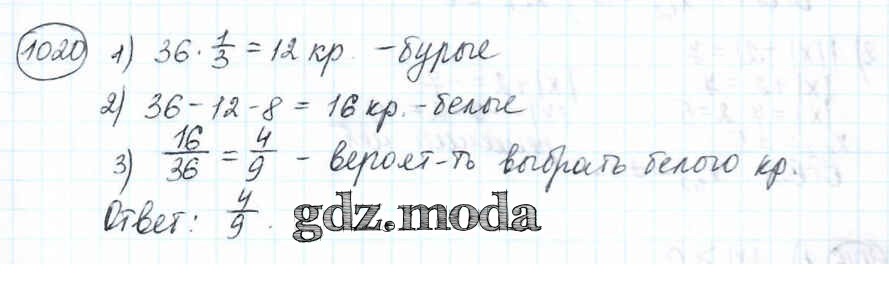 1020 1) 36 · 1/3 = 12 кр. - бурые
2) 36 - 12 - 8 = 16 кр. - белые
3) 16/36 = 4/9 - вероят-ть выбрать белого кр.
Ответ: 4/9.
gdz.moda